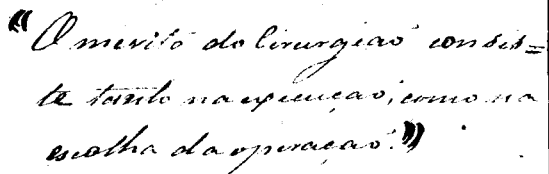 "O merito do Cirurgião consis=
te tanto na execução, como na
escolha da operação."